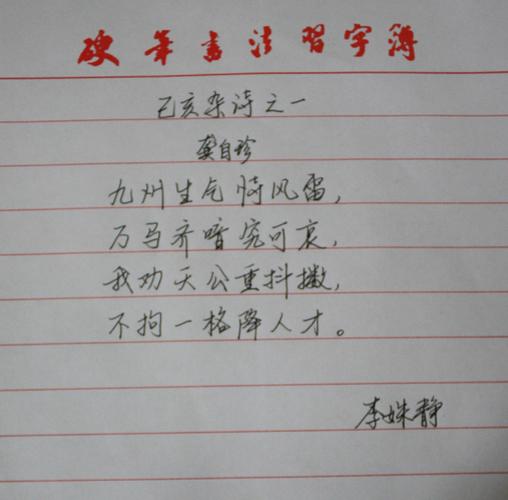 硬笔书法习字簿
己亥杂诗之一
龚自珍
九州生气恃风雷,
万马齐喑究可哀,
我劝天公重抖擞,
不拘一格降人才。
李姝静